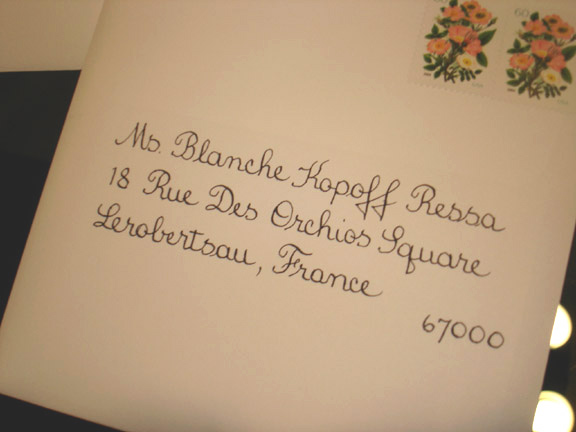 60
Ms. Blanche Kopoff Ressa
18 Rue Des Orchios Square
Lerobertsau, France
67000